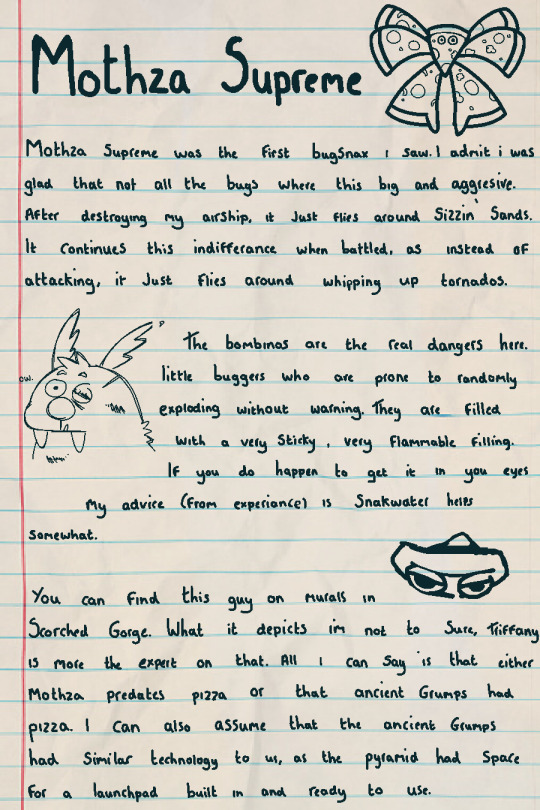 Mothza Supreme
Mothza Supreme was the first bugsnax i saw. I admit i was
glad that not all the bugs where this big and aggresive.
After destroying my airship, it Just flies around Sizzin' Sands.
It continues this indifferance when battled, as instead of
attacking, it Just flies around whipping up tornados.
The bombinos are the real dangers here.
little buggers who are prone to randomly
ow.
exploding without warning. They are filled
with a very sticky, very flammable filling.
If you do happen to get it in you eyes
My advice (from experiance) is Snakwater helps
somewhat.
You can find this guy on murals in
Scorched Gorge. What it depicts im not to Sure, Triffany
is more the expert on that. All i can Say is that either
Mothza predates pizza or that ancient Grumps had
pizza. I Can also assume that the ancient Grumps
had Similar technology to us, as the pyramid had Space
for a launchpad built in and ready to use.